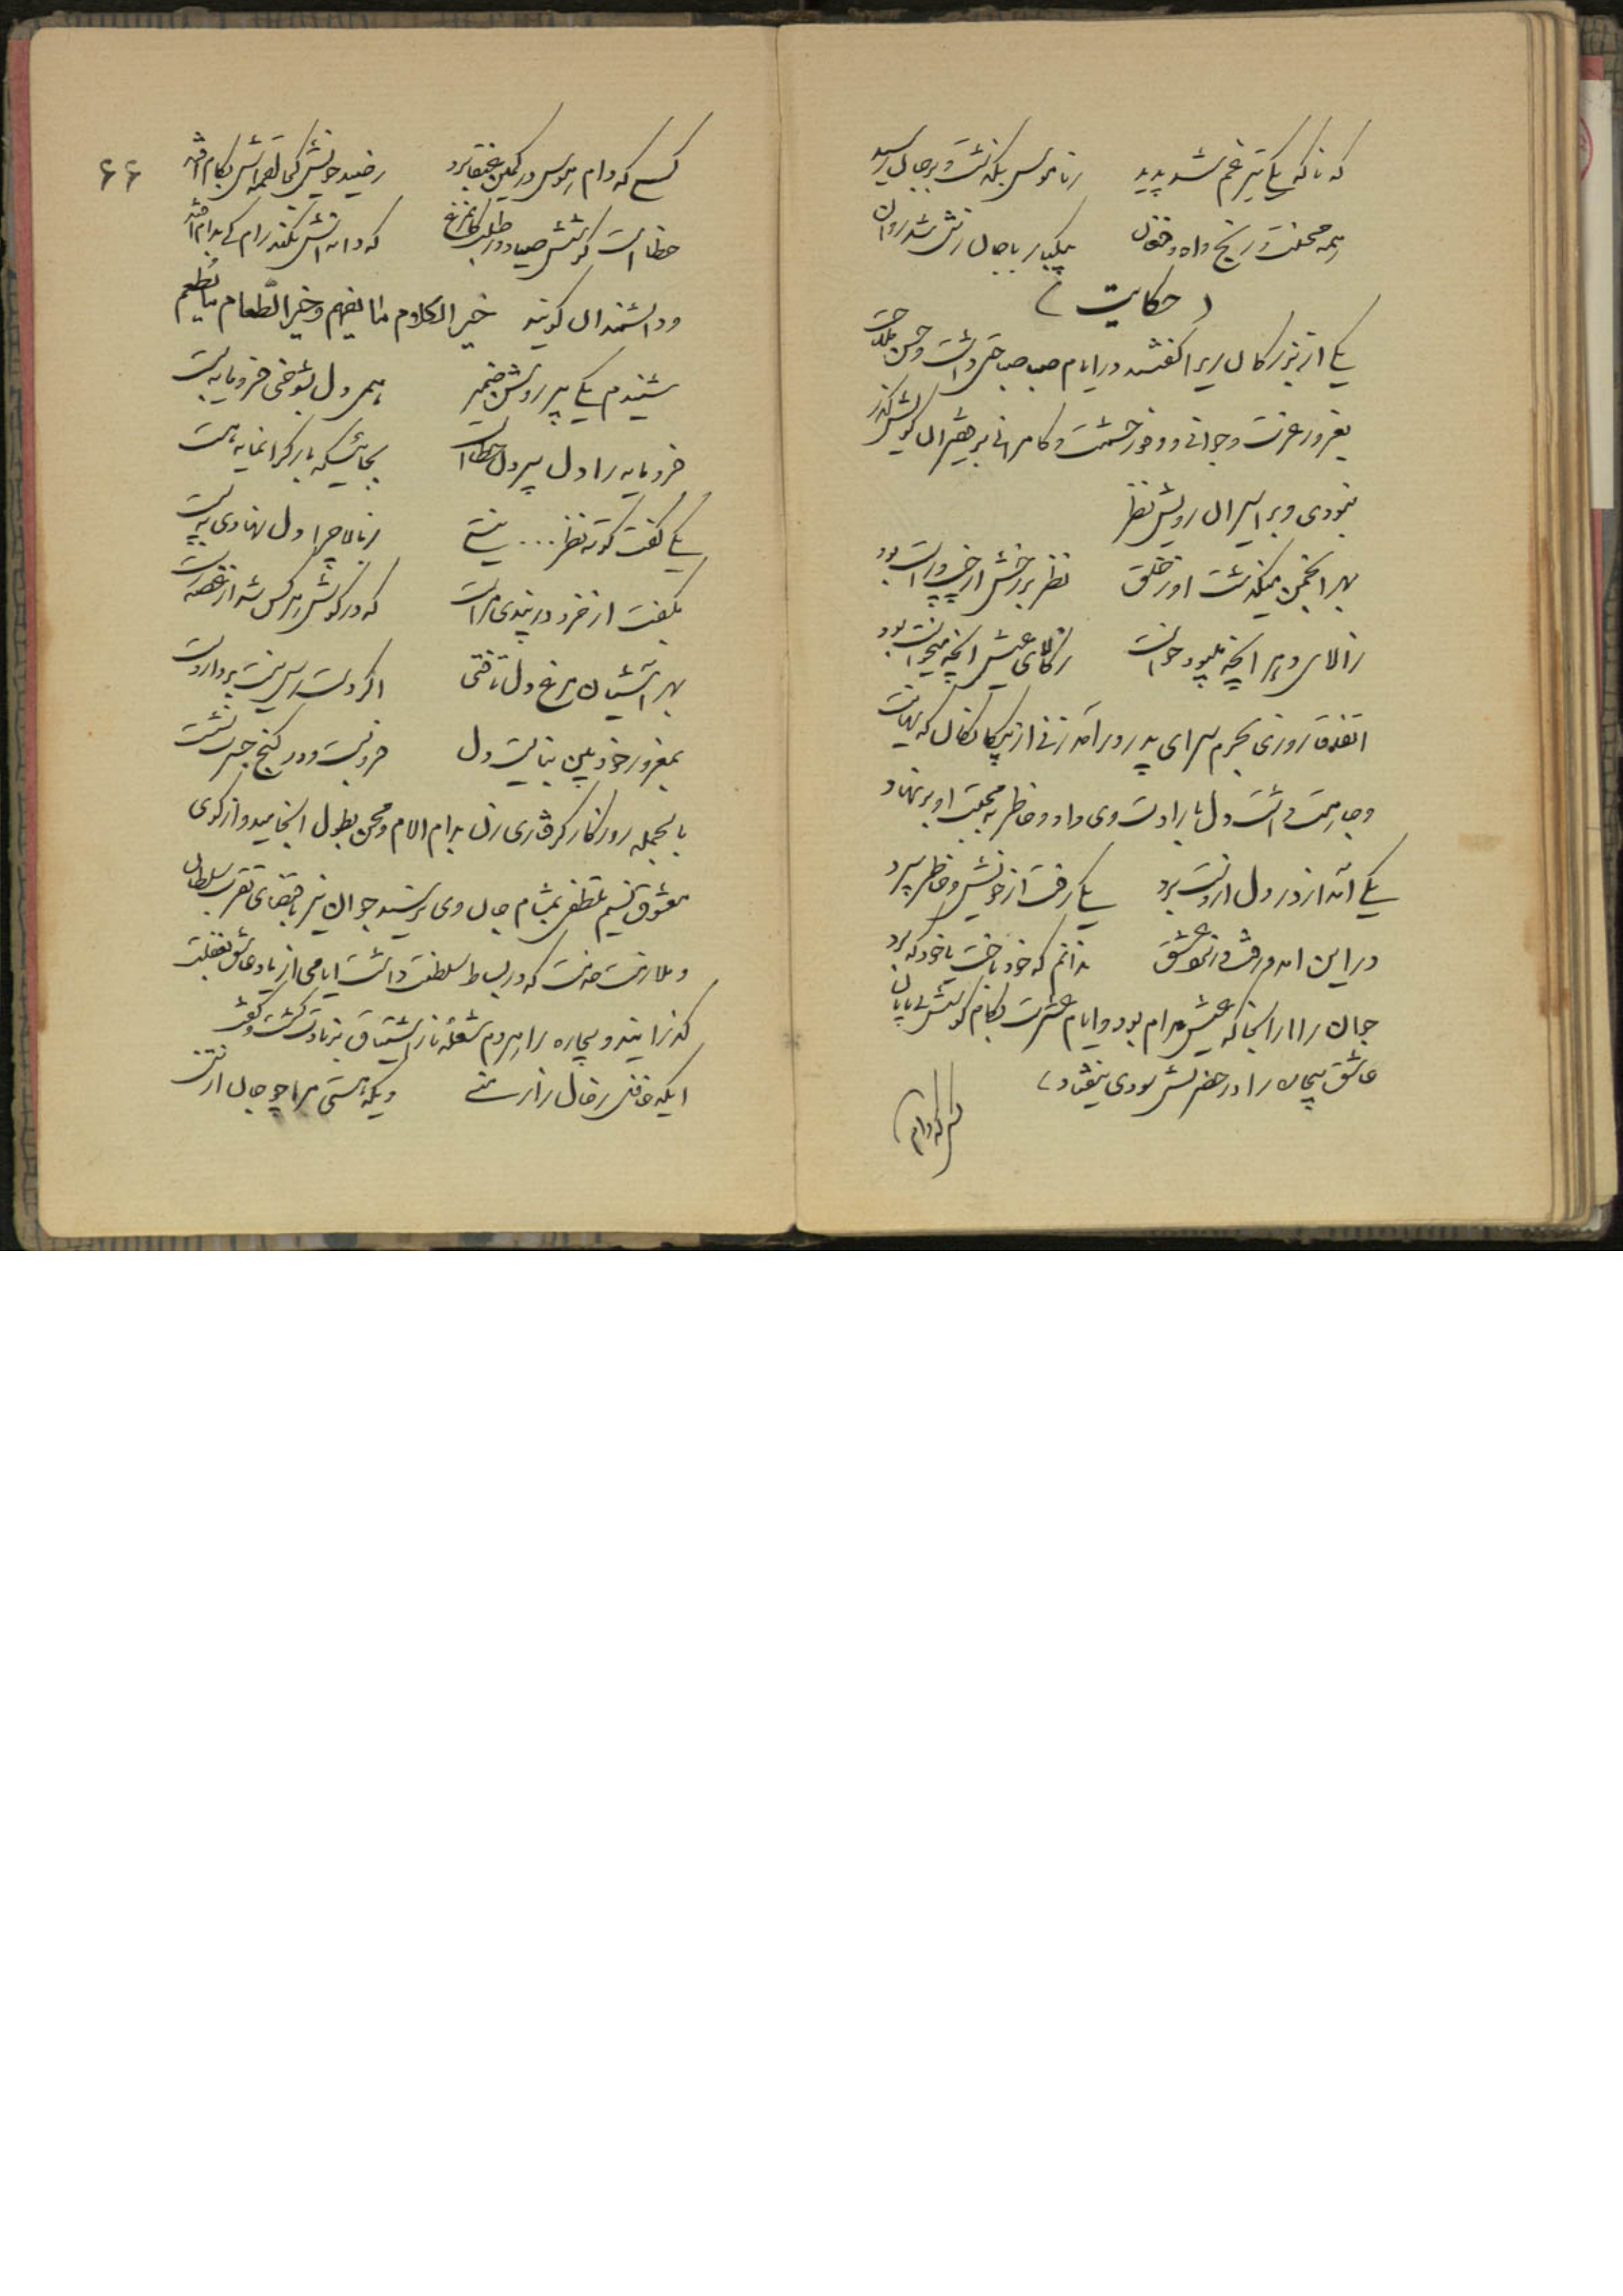 که ناگه یکی تیر غم شد پدید ز ناموس بگذشت و بر جان رسید
همه محنت و رنج و آه و فغان بیکبار با جان زتن شد روان
(حکایت)
یکی از بزرگان را گفتند در ایام صبی صباحتی داشت و حسن ملاحت
بغرور عزت و جوانی و وفور حشمت و کامرانی بر فقیران کویش گذر
ننمودی و بر اسیران رویش نظر
بهر انجمن میگذشت او ز خلق نظر بر رخش از چپ و راست بود
ز کالای عیش آنچه میخواست بود
اتفاقا روزی بحرم سرای پدر در آمد زنی از بیگانگان که
داشت دل بارادت وی داد و خاطر به محبت او بر نهاد
یکی آمد از در دل از دست برد یکی رفت از خویش و خاطر سپرد
در این ندانم که خود باخت یا خود که برد
جوان را از آنجا که عیش مدام بود و ایام عشرت بکام گوشش
عاشق بیچاره را در حضرتش سودی نیفتاد
کسی که دام
۶۶
کسی که دام هوس در کمین عنقا برد ز صید خویش کجا لقمه اش بکام افتد
خطا است کوشش صیاد در طلب کان مرغ که دانه اش نکند رام کی بدام افتد
و دانشمندان گویند خیر الکلام ما یفهم و خیر الطعام ما یطعم
شنیدم یکی پیر روشن ضمیر همی دل بشوخی فرومایه بست
فرومایه را دل سپردن خطا است بجائیکه یار گرانمایه هست
یکی گفت کوته نظر ... نیستی ز بالا چرا دل نهادی به پست
بگفت از خرد در پندی مراست که در گوش هر کس شد از غصه رست
بهر آشیان مرغ دل تافتی اگر دسترس نیست بردار دست
بمغرور خودبین نبایست دل فرو بست و در کنج حسرت نشست
بالجمله روزگار گرفتاری زن بدام آلام و محن بطول انجامید و از کوی
معشوق نسیم تلطفی بمشام جان وی نرسید جوان نیز باقتضای تقرب سلطان
و ملازمت خدمت که در بساط سلطنت داشت ایامی از یاد عاشق بغفلت
گذرانید و بیچاره را هردم شعله نار اشتیاق بزیادت گشت و گفتی
ایکه غافل ز حال زار منی ویکه هستی مرا چو جان از تن